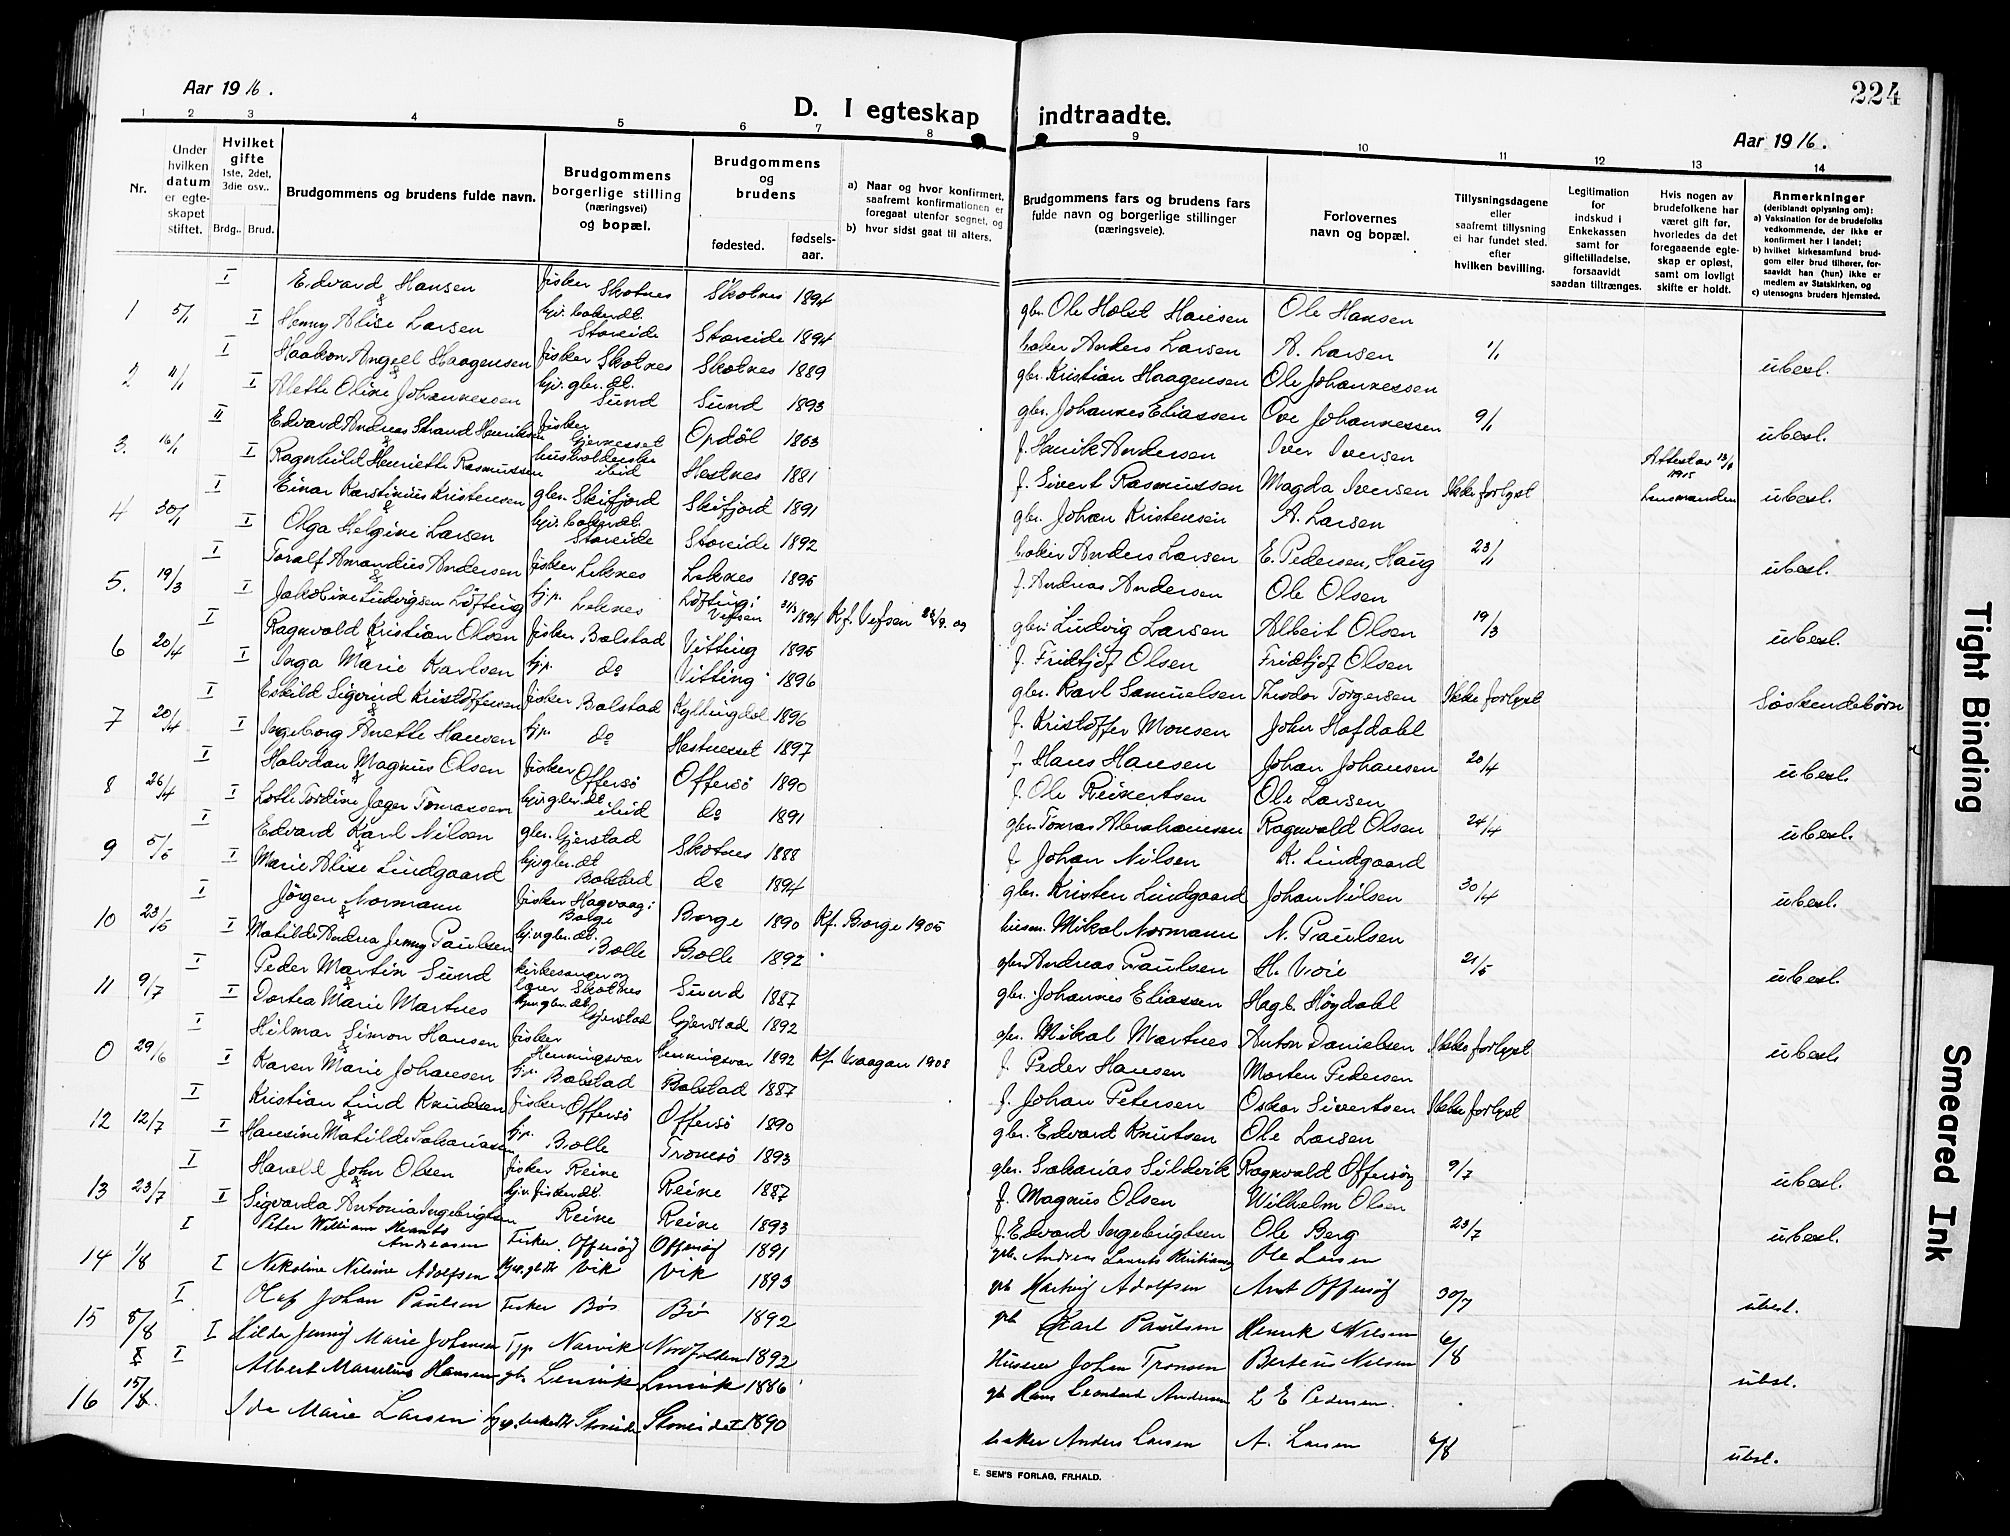 Aar 1916.
224
D. I egteskap indtraadte.
Aar 1916.
1 2 3 4 5 6 7 8 9 10 11 12 13 14
Nr.
Under hvilken datum er egteskapet stiftet.
Hvilket gifte 1ste, 2det, 3die osv..
Brdg.. Brud.
Brudgommens og brudens fulde navn.
Brudgommens borgerlige stilling (næringsvei) og bopæl.
Brudgommens og brudens
fødested. fødselsaar.
a) Naar og hvor konfirmert, saafremt konfirmationen er foregaat utenfor sognet, og
b) hvor sidst gaat til alters.
Brudgommens fars og brudens fars fulde navn og borgerlige stillinger (næringsveie).
Forlovernes navn og bopæl.
Tillysningsdagene eller saafremt tillysning ei har fundet sted. efter hvilken bevilling.
Legitimation for indskud i Enkekassen samt for giftetilladelse, forsaavidt saadan tiltrænges.
Hvis nogen av brudefolkene har været gift før, hvorledes da det foregaaende egteskap er opløst, samt om lovligt skifte er holdt.
Anmerkninger (deriblandt oplysning om):
a) Vaksination for de brudefolks vedkommende, der ikke er konfirmert her i landet;
b) hvilket kirkesamfund brudgom eller brud tilhører, forsaavidt han (hun) ikke er medlem av Statskirken, og
c) utensogns bruders hjemsted.
I Edvard Hansen fisker Skotnes Skotnes 1894 gbr. Ole Holst Hansen Ole Hansen
1 5/1 I & Henny Alise Larsen hjv. baker dt. Storeide Storeide 1894 baker Anders Larsen A. Larsen 1/1 ubesl.
I Haakon Angell Haagensen fisker Skotnes Skotnes 1889 gbr. Kristian Haagensen Ole Johannessen
2 4/1 I & Alette Oline Johannessen hjv. gbr. dt. Sund Sund 1893 gbr. Johannes Eliassen Ove Johannessen 9/1 ubesl.
II Edvard Andreas Strand Henriksen fisker Gjernesset Opdöl 1863 f. Henrik Andersen Iver Iversen
3. 16/1 I & Ragnhild Henriette Rasmussen husholderske ibid Hestnes 1881 f. Sivert Rasmussen Magda Iversen Ikke forlyst Attest av 13/6 1915 Lensmanden ubesl.
I Einar Karstinius Kristensen gbr. Skifjord Skifjord 1891 gbr. Johan Kristensen A. Larsen
4 30/1 I & Olga Helgine Larsen hjv. baker dt. Storeide Storeide 1892 baker Anders Larsen E. Pedersen, Haug 23/1 ubesl.
I Toralf Amandius Andersen fisker Leknes Leknes 1895 f. Andreas Andersen Ole Olsen
5. 19/3 I & Jakobine Ludvigsen Löfting tjp. Leknes Löfting i Vefsen 21/3 1894 Kf. Vefsen gbr. Ludvig Larsen Albert Olsen 19/3 ubesl.
I Ragnvald Kristian Olsen fisker Bolstad Vitting 1895 f. Fridtjof Olsen Fridtjof Olsen
6 20/4 I & Inga Marie Karlsen tjp. do Vitting 1896 gbr. Karl Samuelsen Theodor Torgersen Ikke forlyst Söskendebörn
I Eskild Sigvind Kristoffersen fisker Bolstad Kyllingdal 1896 f. Kristoffer Monsen John Hofdahl
7 20/4 I & Ingeborg Anette Hansen tjp. do Hestnesset 1897 f. Hans Hansen Johan Johansen 20/4 ubesl.
I Halvdan Magnus Olsen fisker Offersö Offersö 1890 f. Ole Reinertsen Ole Larsen
8 26/4 I & Lotte Tordine Jager Tomassen hjv. gbr. dt ibid do 1891 gbr. Tomas Abrahamsen Ragnvald Olsen 24/4 ubesl.
I Edvard Karl Nilsen gbr. Gjerstad Skotnes 1888 f. Johan Nilsen K. Lindgaard
9 5/5 I & Marie Alise Lindgaard hjv. gbr. dt Bolstad do 1894 gbr. Kristen Lindgaard Johan Nilsen 30/4 ubesl.
I Jörgen Normann fisker Hagvaag i Borge Borge 1890 Kf. Borge 1905 husm. Mikal Normann N. Paulsen
10 23/5 I & Matilde Andrea Jenny Paulsen hjv. gbr. dt. Bolle Bolle 1892 gbr. Andreas Paulsen H. Voie 21/5 ubesl.
I Peder Martin Sund kirkesanger og lærer Skotnes Sund 1887 gbr. Johannes Eliassen Hagb. Höydahl
11 9/7 I & Dortea Marie Martnes hjv. gbr. dt. Gjerstad Gjerstad 1892 gbr. Mikal Martnes Anton Danielsen Ikke forlyst ubesl.
I Hilmar Simon Hansen fisker Henningsvær Henningsvær 1892 Kf. Vaagan 1908 f. Peder Hansen Morten Pedersen
0 29/6 I & Karen Marie Johansen tjp. Bolstad Bolstad 1887 f. Johan Petersen Oskar Sivertsen Ikke forlyst
I Kristian Lind Knudsen fisker Offersö Offersö 1890 gbr. Edvard Knutsen Ole Larsen
12 12/7 I & Hansine Matilde Sakariassen tjp. Bolle Tronesö 1893 gbr. Sakarias Sildvik Ragnvald Offersöy 9/7 ubesl.
I Harald John Olsen fisker Reine Reine 1887 f. Magnus Olsen Wilhelm Olsen
13 23/7 I & Sigvarda Antonia Ingebrigtsen hjv. fisker dt. Reine Reine 1893 f. Edvard Ingebrigtsen Ole Berg 23/7 ubesl.
I Peter William Andreasen Fisker Offersöy Offersöy 1891 gbr. Andreas Laurits Kristiansen Ole Larsen
14 1/8 I Nikoline Nilsine Adolfsen hjv. gb dt Vik Vik 1893 gb Hartvig Adolfsen Arnt Offersöy 30/7 ubesl.
I Olaf Johan Paulsen Fisker Bös Bö 1892 gb Karl Paulsen Henrik Nilsen
15 8/8 I Hilda Jenny Marie Johansen Tjp. Narvik Nordfolden 1892 Husmand Johan Tronsen Berteus Nilsen 6/8 ubesl.
I I Albert Marselius Hansen gb. Lenvik Lenvik 1886 gb Hans Leonhard Andersen L E Pedersen.
16 15/8. Ida Marie Larsen hjv. baker dt Storeide Storeide I 1890 baker Anders Larsen A. Larsen 6/8 ubesl.
E. SEM'S FORLAG, FR.HALD.
Tight Binding
Smeared Ink